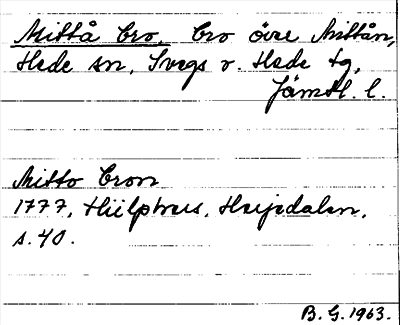 Mittå bro. bro övre Mittån,
Hede sn, Svegs o. Hede tg,
Jämtl. l.
Mitto bron
1777, Hülphers, Herjedalen,
s. 40.
B. G. 1963.